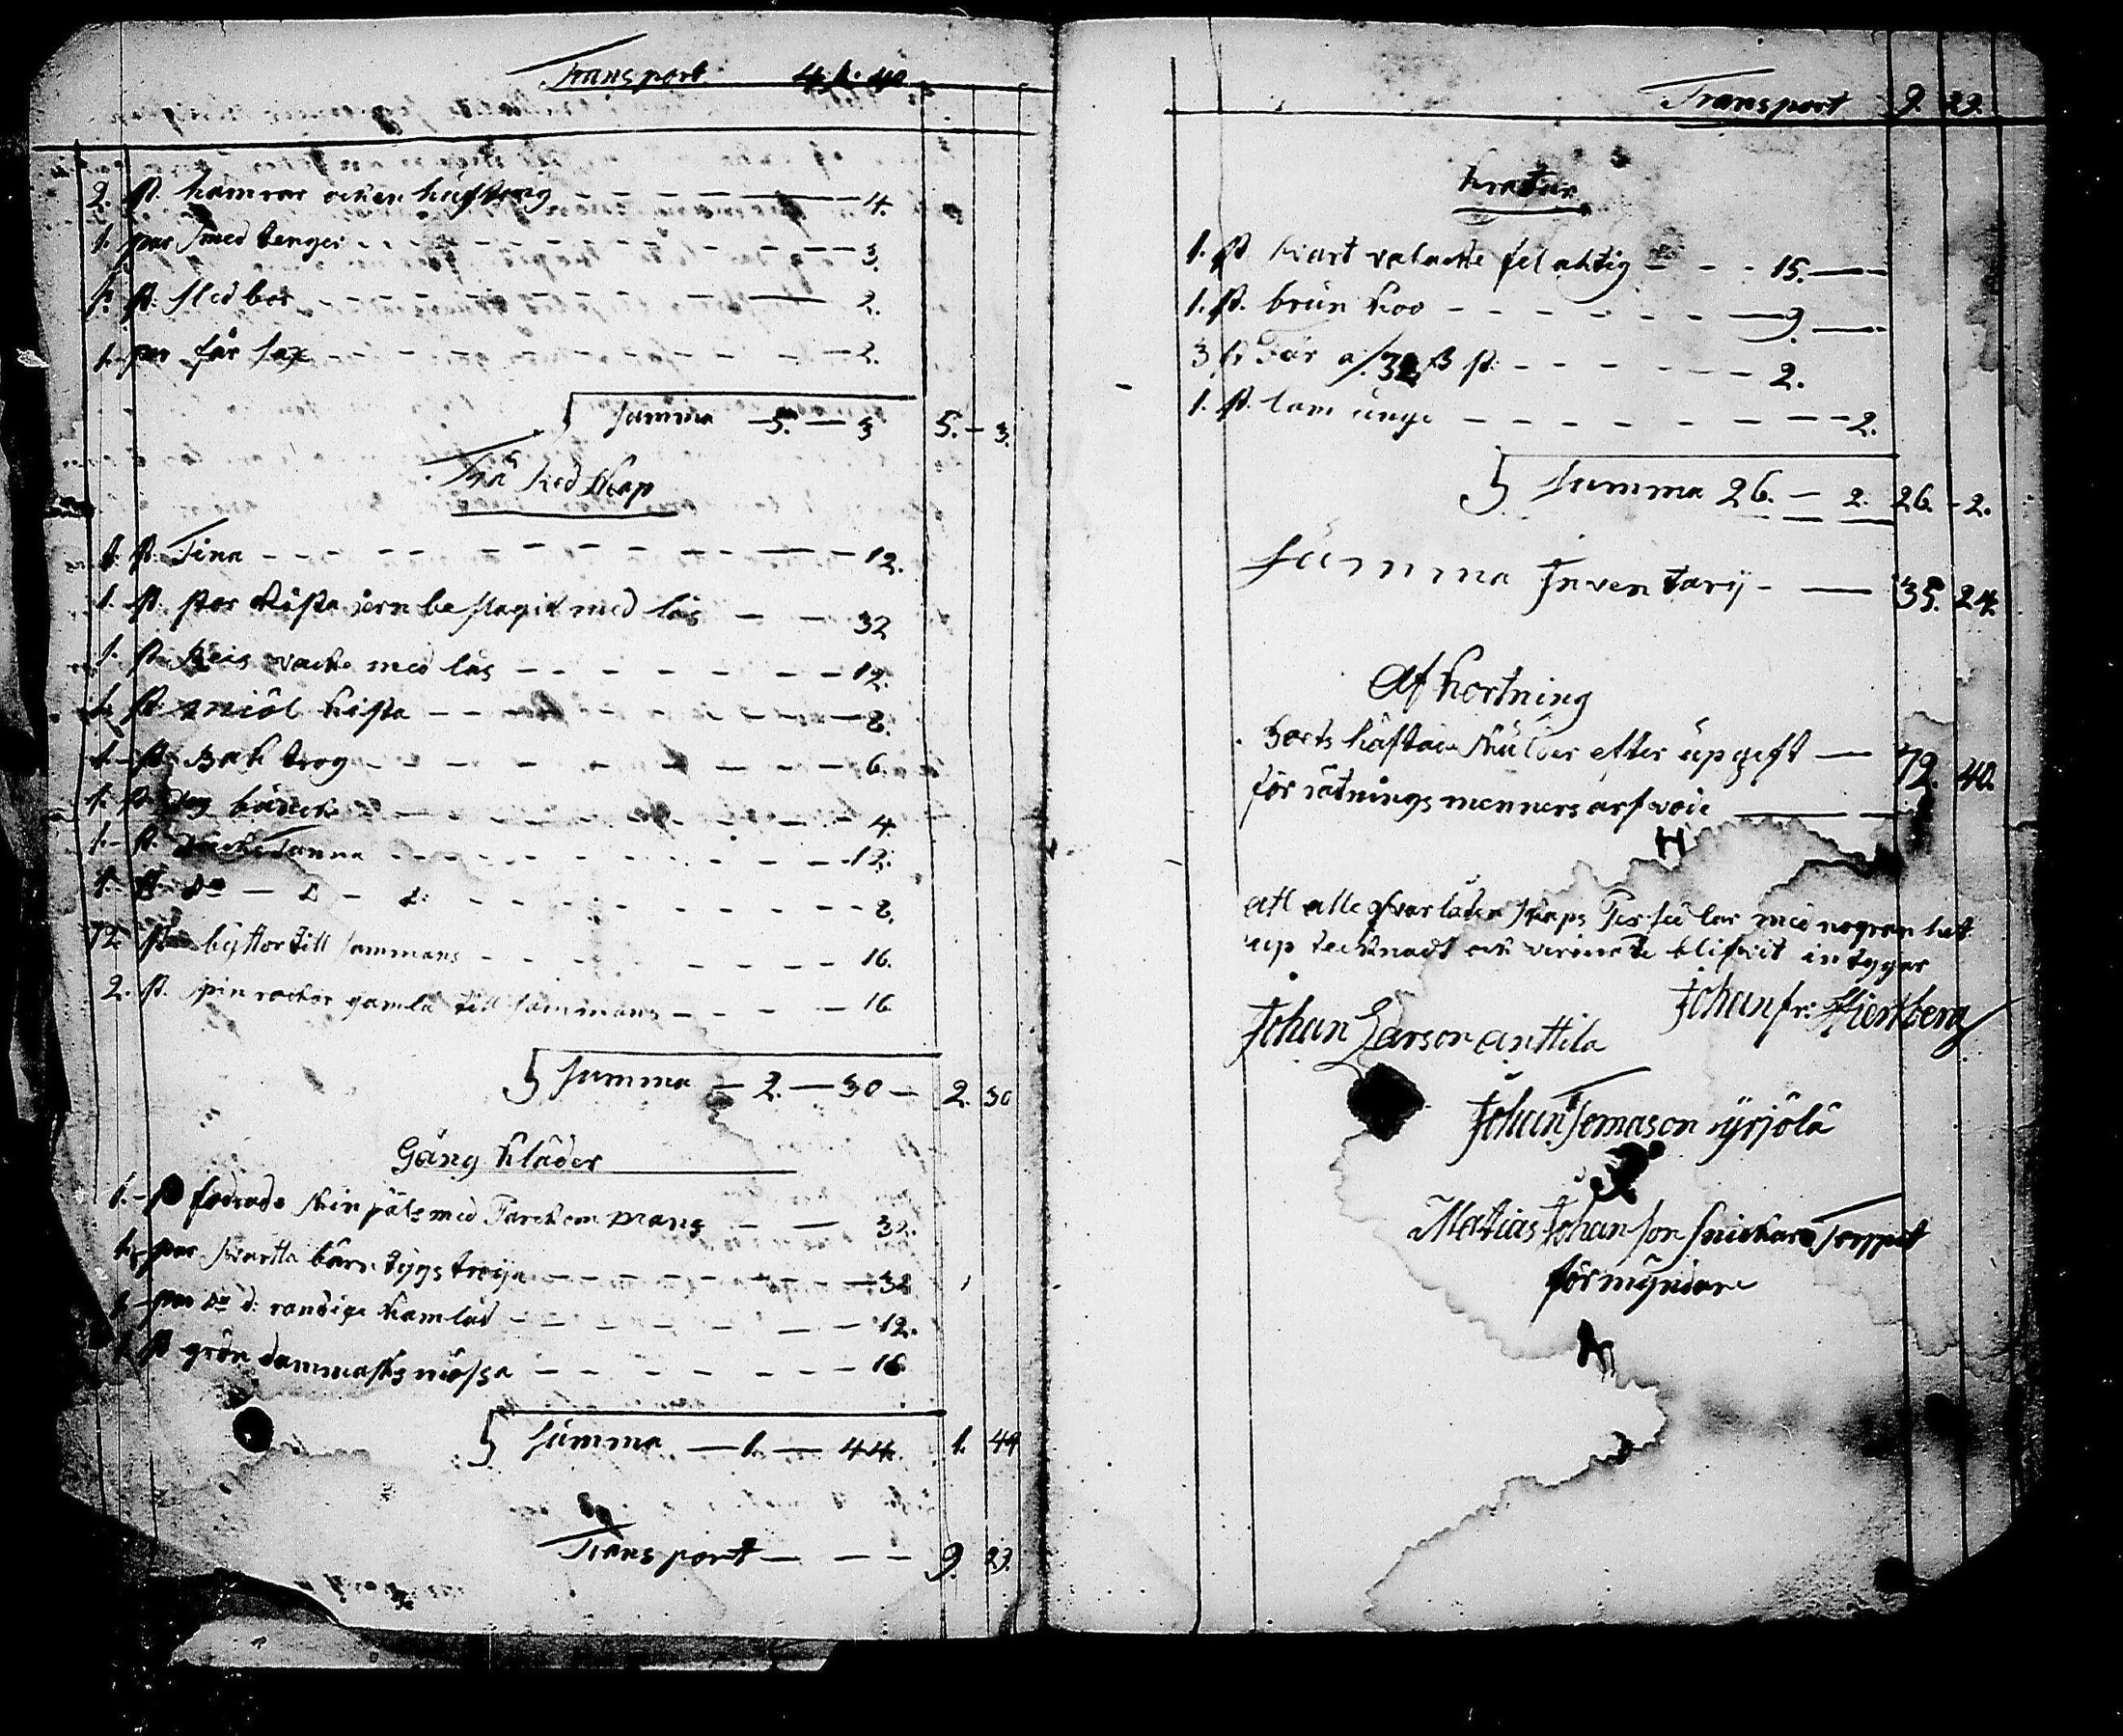 Transport 4. 40
2. st. hamrar och en håftång - - - 4.
1. par Smed tenger - - - 3.
1. st. sled bor - - - 2.
1. par får sax - - - 2.
Summa 5. — 3 5. - 3.
Trä Red Skap
1. st. Tina - - - 12.
1. st. stor kista jern beslagit med lås - - 32
1. st. Reis vacka med lås - - - 12.
1. st. miöl kista - - - 8.
1. st. Bak trog - - - 6.
1. st. deg bünck - - - 4.
1. st. Tunna - - - 12.
1. st. do - d - d: - - - 8.
12. st. byttor till sammans - - - 16.
2. st. spin rockar gamla till sammans - - - 16
Summa — 2. — 30 — 2. 30
Gång kläder
1. - st fodrade skin päls med mans - — 32.
1. par swarta tygs tröija - - - 32
1 - par do d: randige kamlåd - - - 12.
1 st grön dammasks mössa - - - 16
Summa — 1. — 44. 1. 44
Transport — - - 9. 29.
Transport 9. 29.
Kratur
1. st. svart valacke fel aktig - - - 15. —
1. st. brun koo - - - 9. —
3 st Får a/. 32 ß st: - - - 2.
1. st. lam unge - - - 2.
Summa 26. — 2. 26. - 2.
Summa Inventarij - — 35. 24.
Afkortning
Boets häftande skulder efter upgift — 72. 40.
för rätnings menners arfwode
H
att alla qvarlåtenskaps Persedlar med nogran het
up tecknadt och verderade blifwit intygar
Johan fr: Hiertberg
Johan Larson anttila
Johan Tomason yrjölä
Matias Johanson snickars Torppet
förmyndare